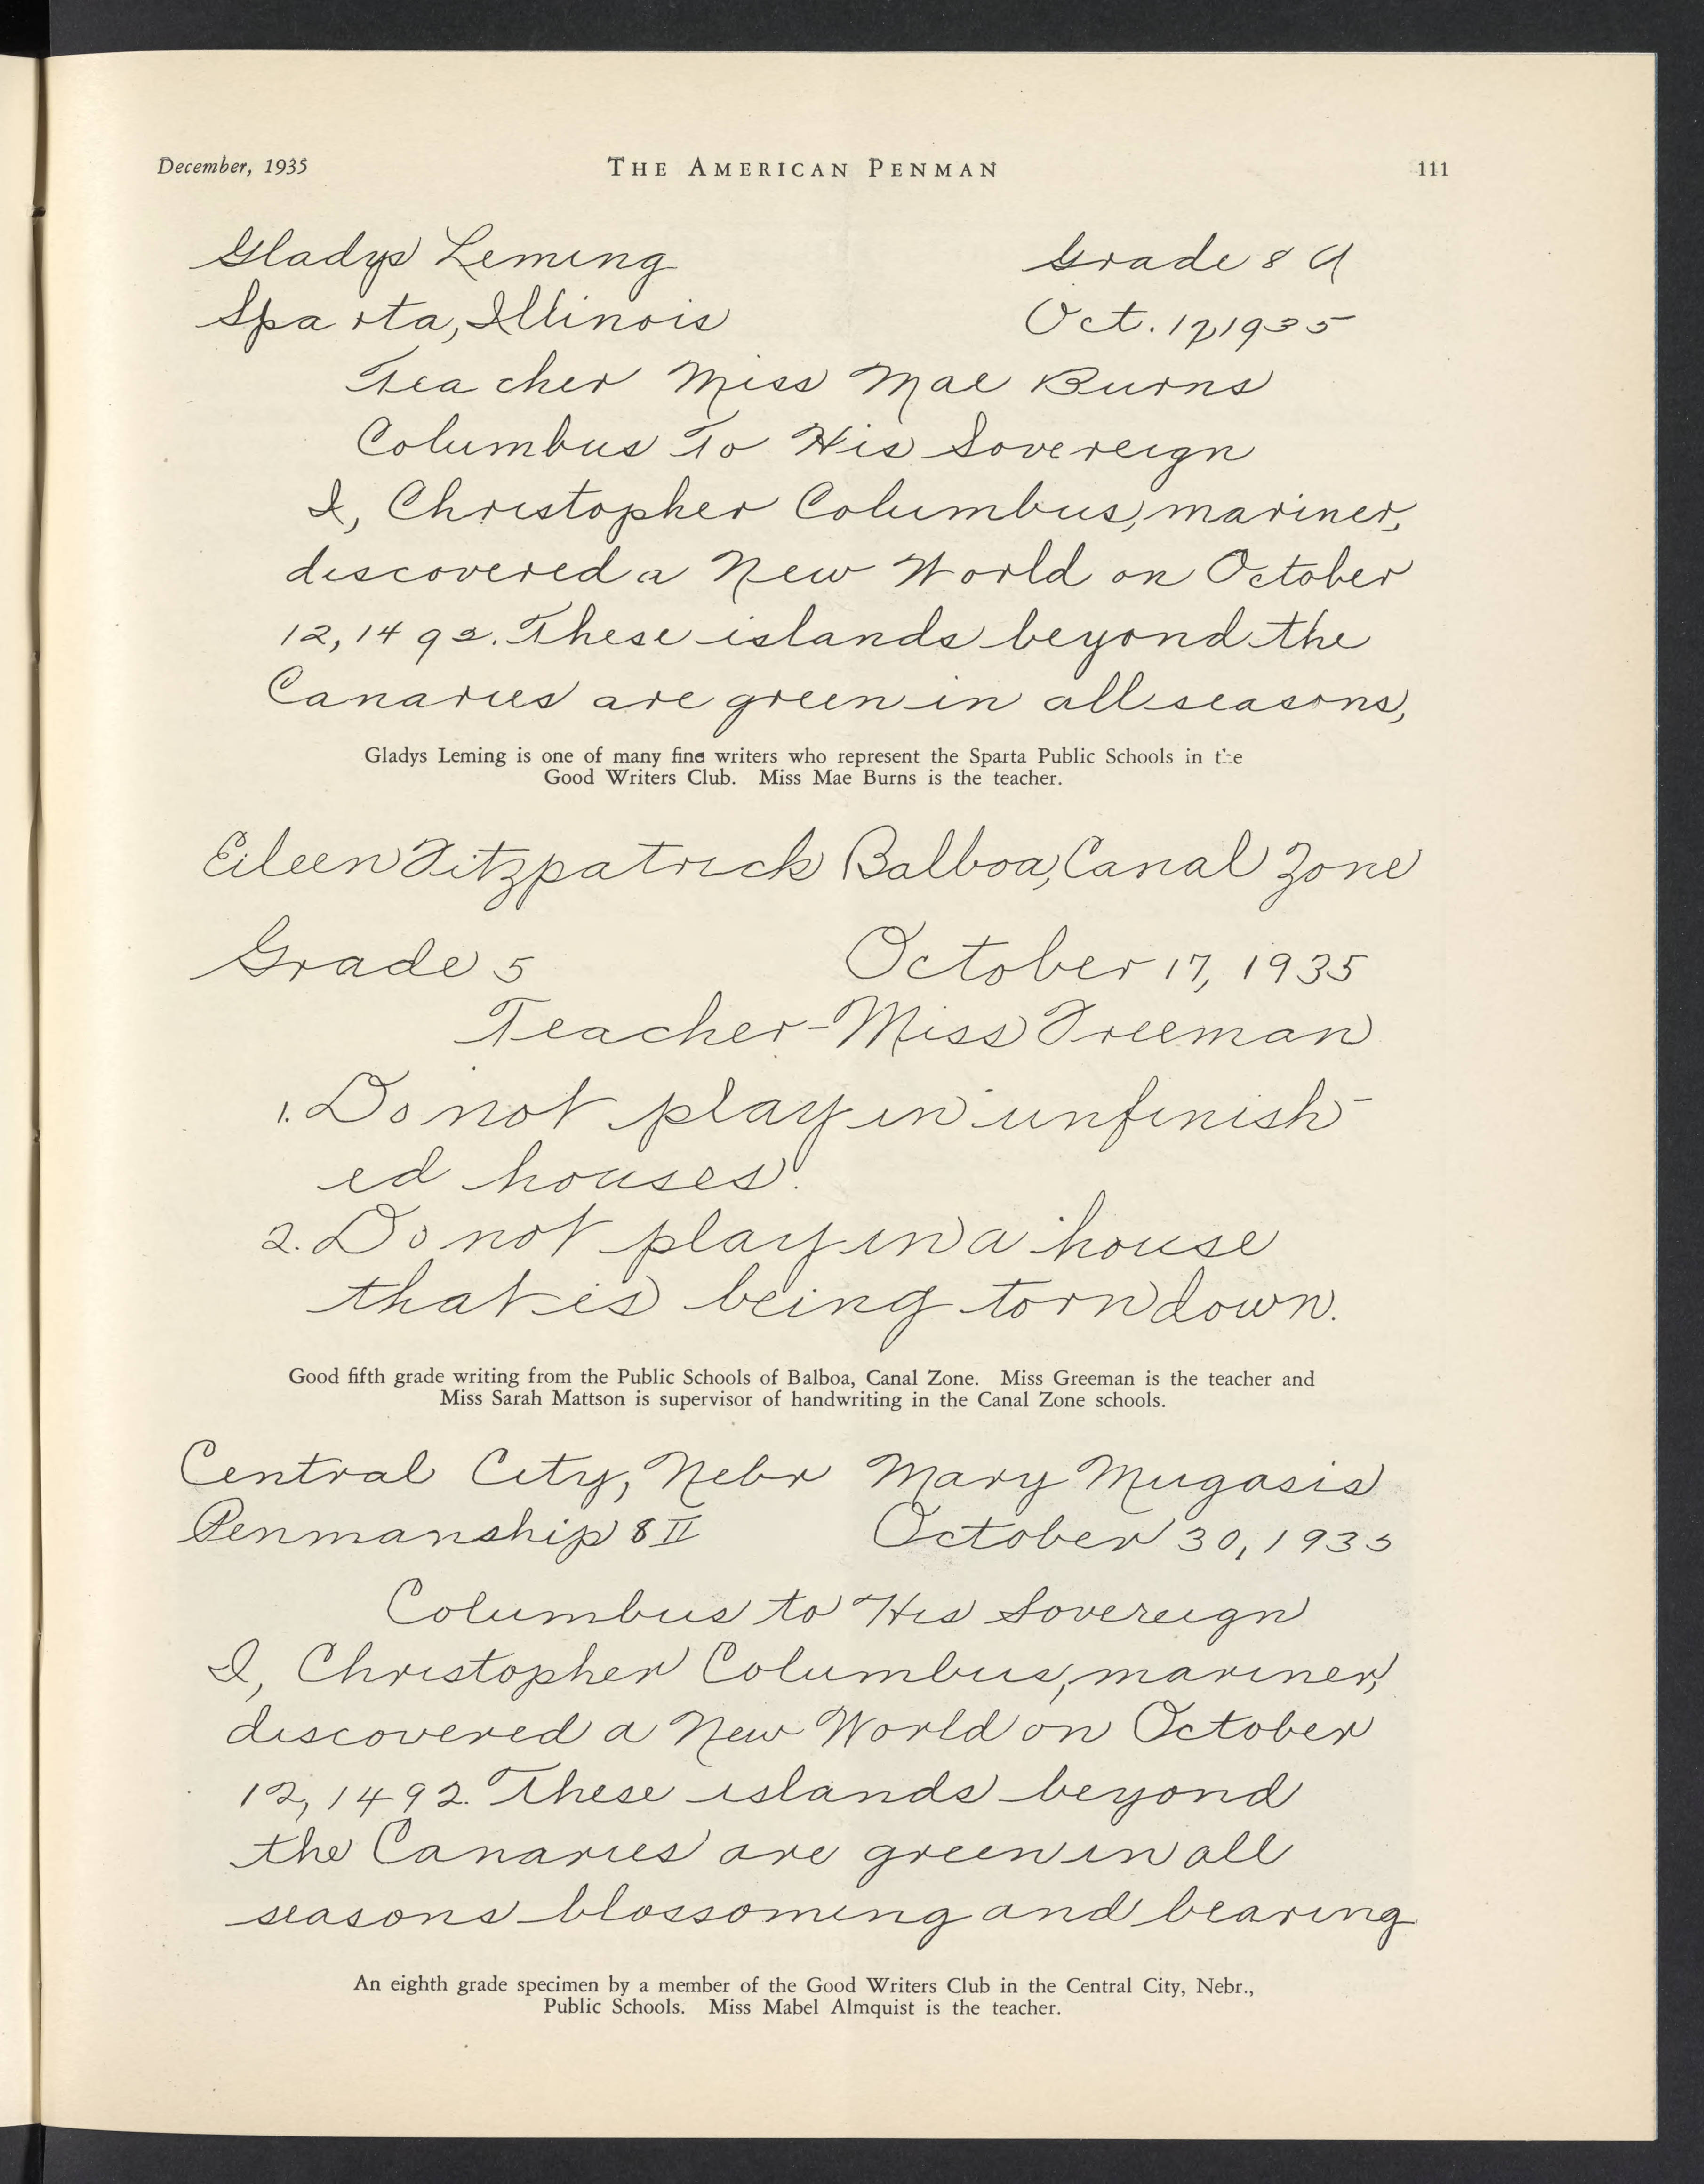 December, 1935 THE AMERICAN PENMAN 111
Gladys Leming Grade 8 A
Sparta, Illinois Oct. 17, 1935
Teacher Miss Mae Burns
Columbus To His Sovereign
I, Christopher Columbus, mariner,
discovered a New World on October
12, 1492. These islands beyond the
Canaries are green in all seasons,
Gladys Leming is one of many fine writers who represent the Sparta Public Schools in the
Good Writers Club. Miss Mae Burns is the teacher.
Eileen Fitzpatrick Balboa, Canal Zone
Grade 5 October 17, 1935
Teacher-Miss Freeman
1. Do not play in unfinish-
ed houses.
2. Do not play in a house
that is being torn down.
Good fifth grade writing from the Public Schools of Balboa, Canal Zone. Miss Greeman is the teacher and
Miss Sarah Mattson is supervisor of handwriting in the Canal Zone schools.
Central City, Nebr Mary Mugasis
Penmanship 8 II October 30, 1935
Columbus to His Sovereign
I, Christopher Columbus, mariner,
discovered a New World on October
12, 1492. These islands beyond
the Canaries are green in all
seasons blossoming and bearing
An eighth grade specimen by a member of the Good Writers Club in the Central City, Nebr.,
Public Schools. Miss Mabel Almquist is the teacher.